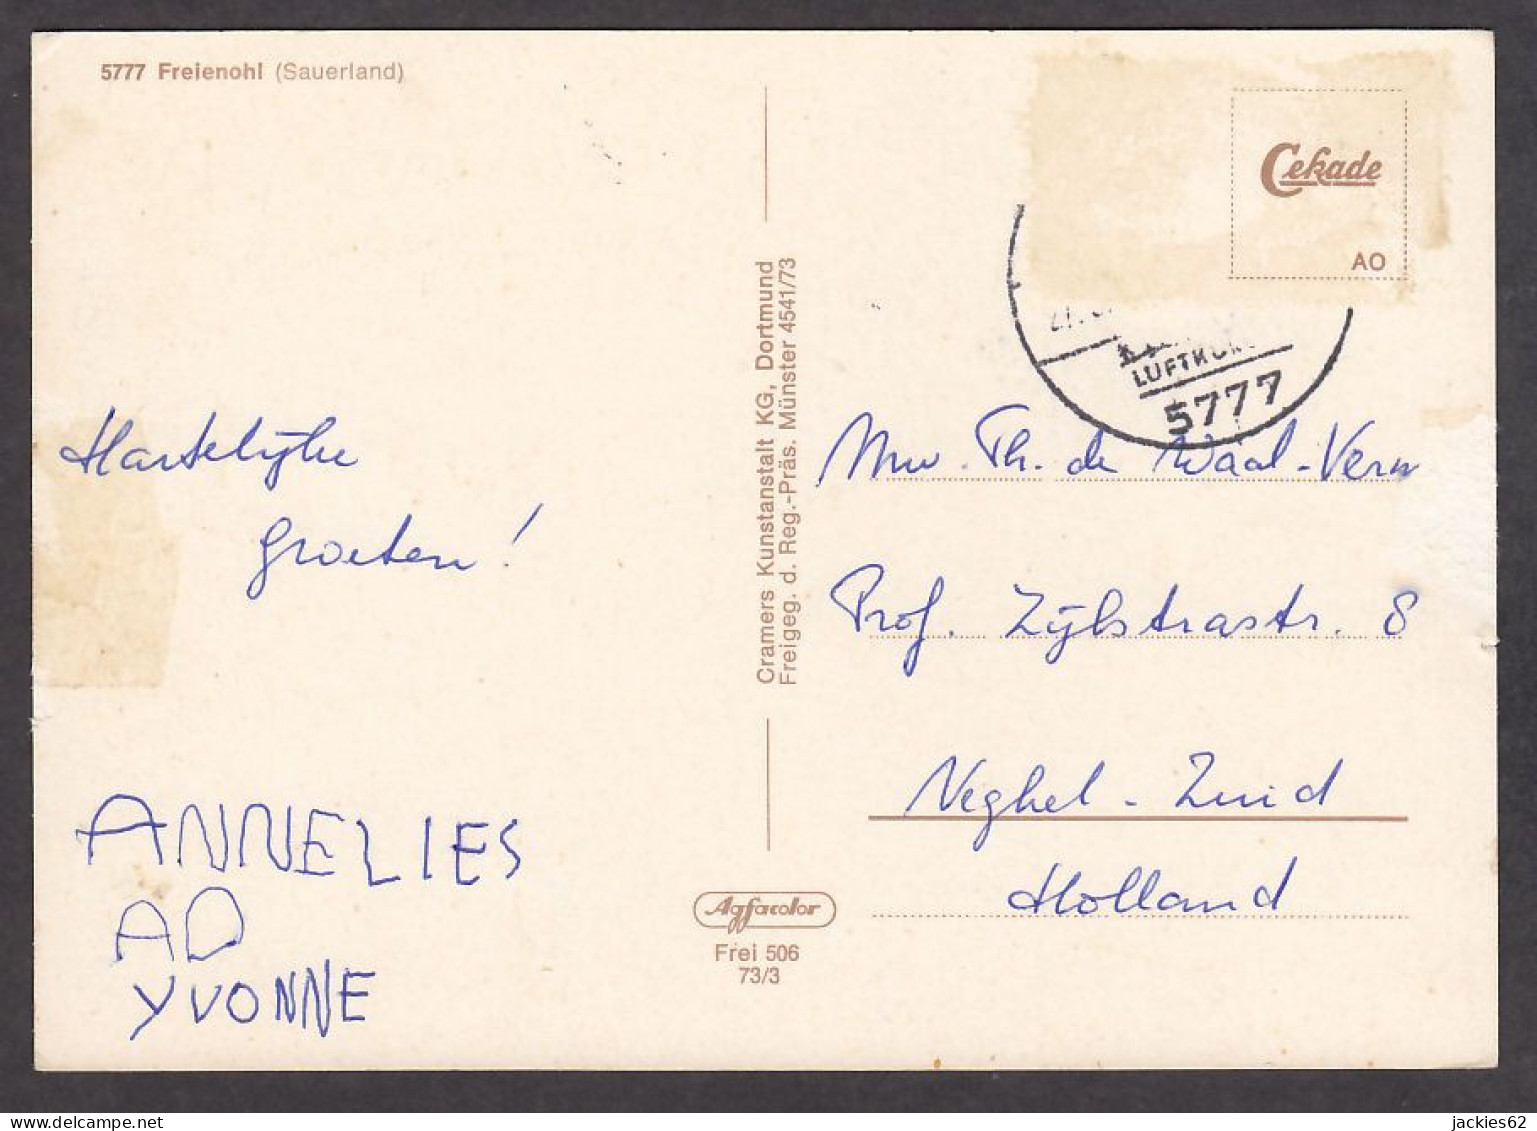 5777 Freienohl (Sauerland)
Cekade
AO
LUFTKUR
5777
Hartelijke
groeten!
ANNELIES
AD
YVONNE
Cramers Kunstanstalt KG, Dortmund
Freigeg. d. Reg.-Präs. Münster 4541/73
Agfacolor
Frei 506
73/3
Mw. Th. de Waal-Verw
Prof. Zijlstrastr. 8
Veghel-Zuid
Holland
jackies62